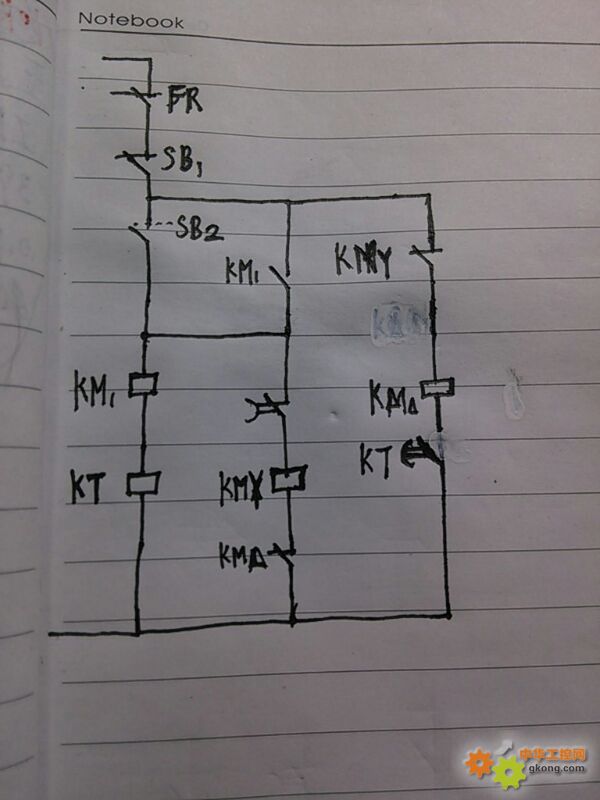 Notebook
FR
SB1
SB2
KM1
KMY
KM1
KMΔ
KT
KT
KMY
KMΔ
中华工控网
gkong.com